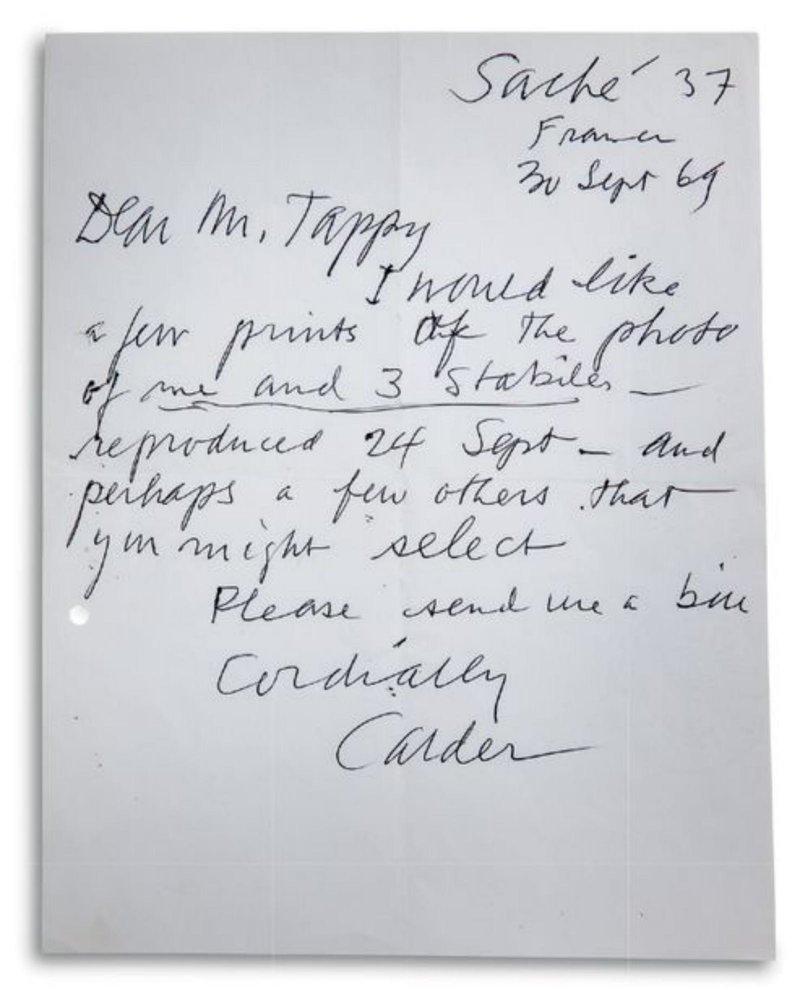 Saché 37
France
30 Sept 69
Dear Mr. Tappy
I would like
a few prints of the photo
of me and 3 Stabiles —
reproduced 24 Sept — and
perhaps a few others that
you might select
Please send me a bill
Cordially
Calder